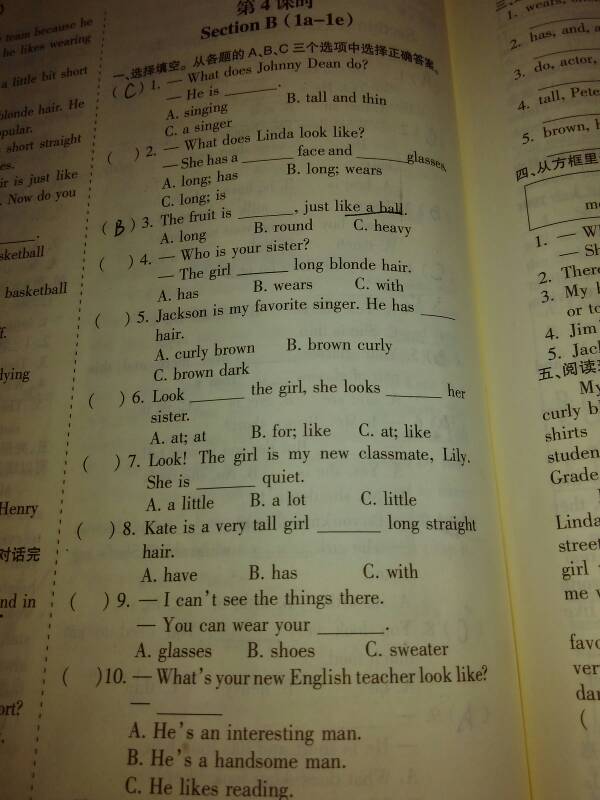 第4课时
Section B (1a–1e)
一、选择填空。从各题的A、B、C三个选项中选择正确答案。
( C ) 1. — What does Johnny Dean do?
— He is ______.
A. singing B. tall and thin
C. a singer
( ) 2. — What does Linda look like?
— She has a ______ face and ______ glasses.
A. long; has B. long; wears
C. long; is
( B ) 3. The fruit is ______, just like a ball.
A. long B. round C. heavy
( ) 4. — Who is your sister?
— The girl ______ long blonde hair.
A. has B. wears C. with
( ) 5. Jackson is my favorite singer. He has ____
hair.
A. curly brown B. brown curly
C. brown dark
( ) 6. Look ______ the girl, she looks ______ her
sister.
A. at; at B. for; like C. at; like
( ) 7. Look! The girl is my new classmate, Lily.
She is ______ quiet.
A. a little B. a lot C. little
( ) 8. Kate is a very tall girl ______ long straight
hair.
A. have B. has C. with
( ) 9. — I can't see the things there.
— You can wear your ______.
A. glasses B. shoes C. sweater
( )10. — What's your new English teacher look like?
— ______
A. He's an interesting man.
B. He's a handsome man.
C. He likes reading.
team because he
he likes wearing
a little bit short
blonde hair. He
opular.
short straight
es.
ir is just like
. Now do you
sketball
basketball
f.
lying
Henry
对话完
nd in
ort?
1. wears, on
2. has, and, a
3. do, actor,
4. tall, Pete
5. brown, h
四、从方框里
m
1. — W
— Sh
2. There
3. My h
or to
4. Jim
5. Jac
五、阅读
My
curly b
shirts
studen
Grade
Linda
street
girl
me v
favo
ver
dar
(